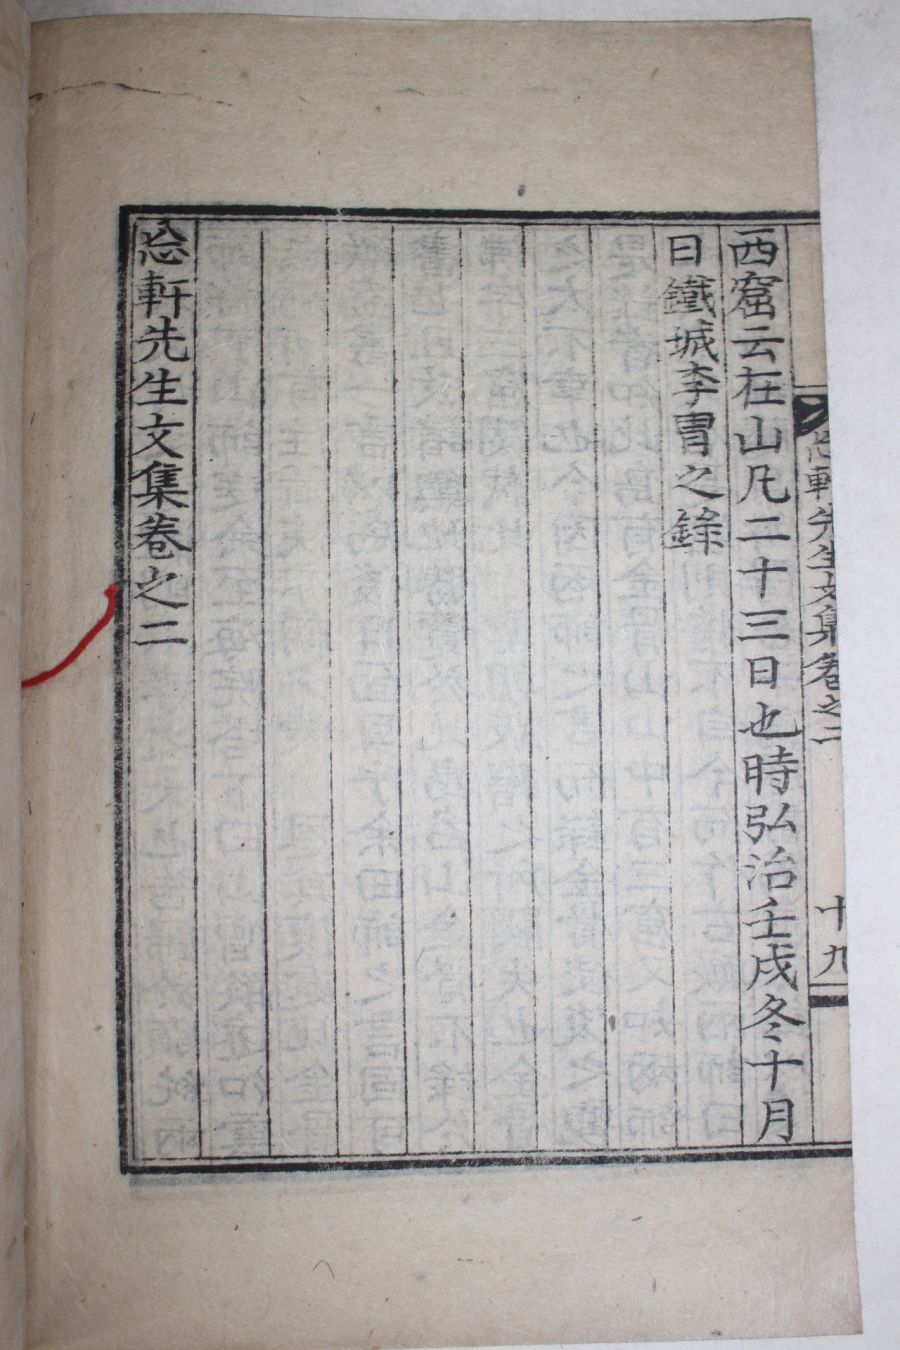 忘軒先生文集卷之二
十九
西窟云在山凡二十三日也時弘治壬戌冬十月
日鐵城李冑之錄
忘軒先生文集卷之二